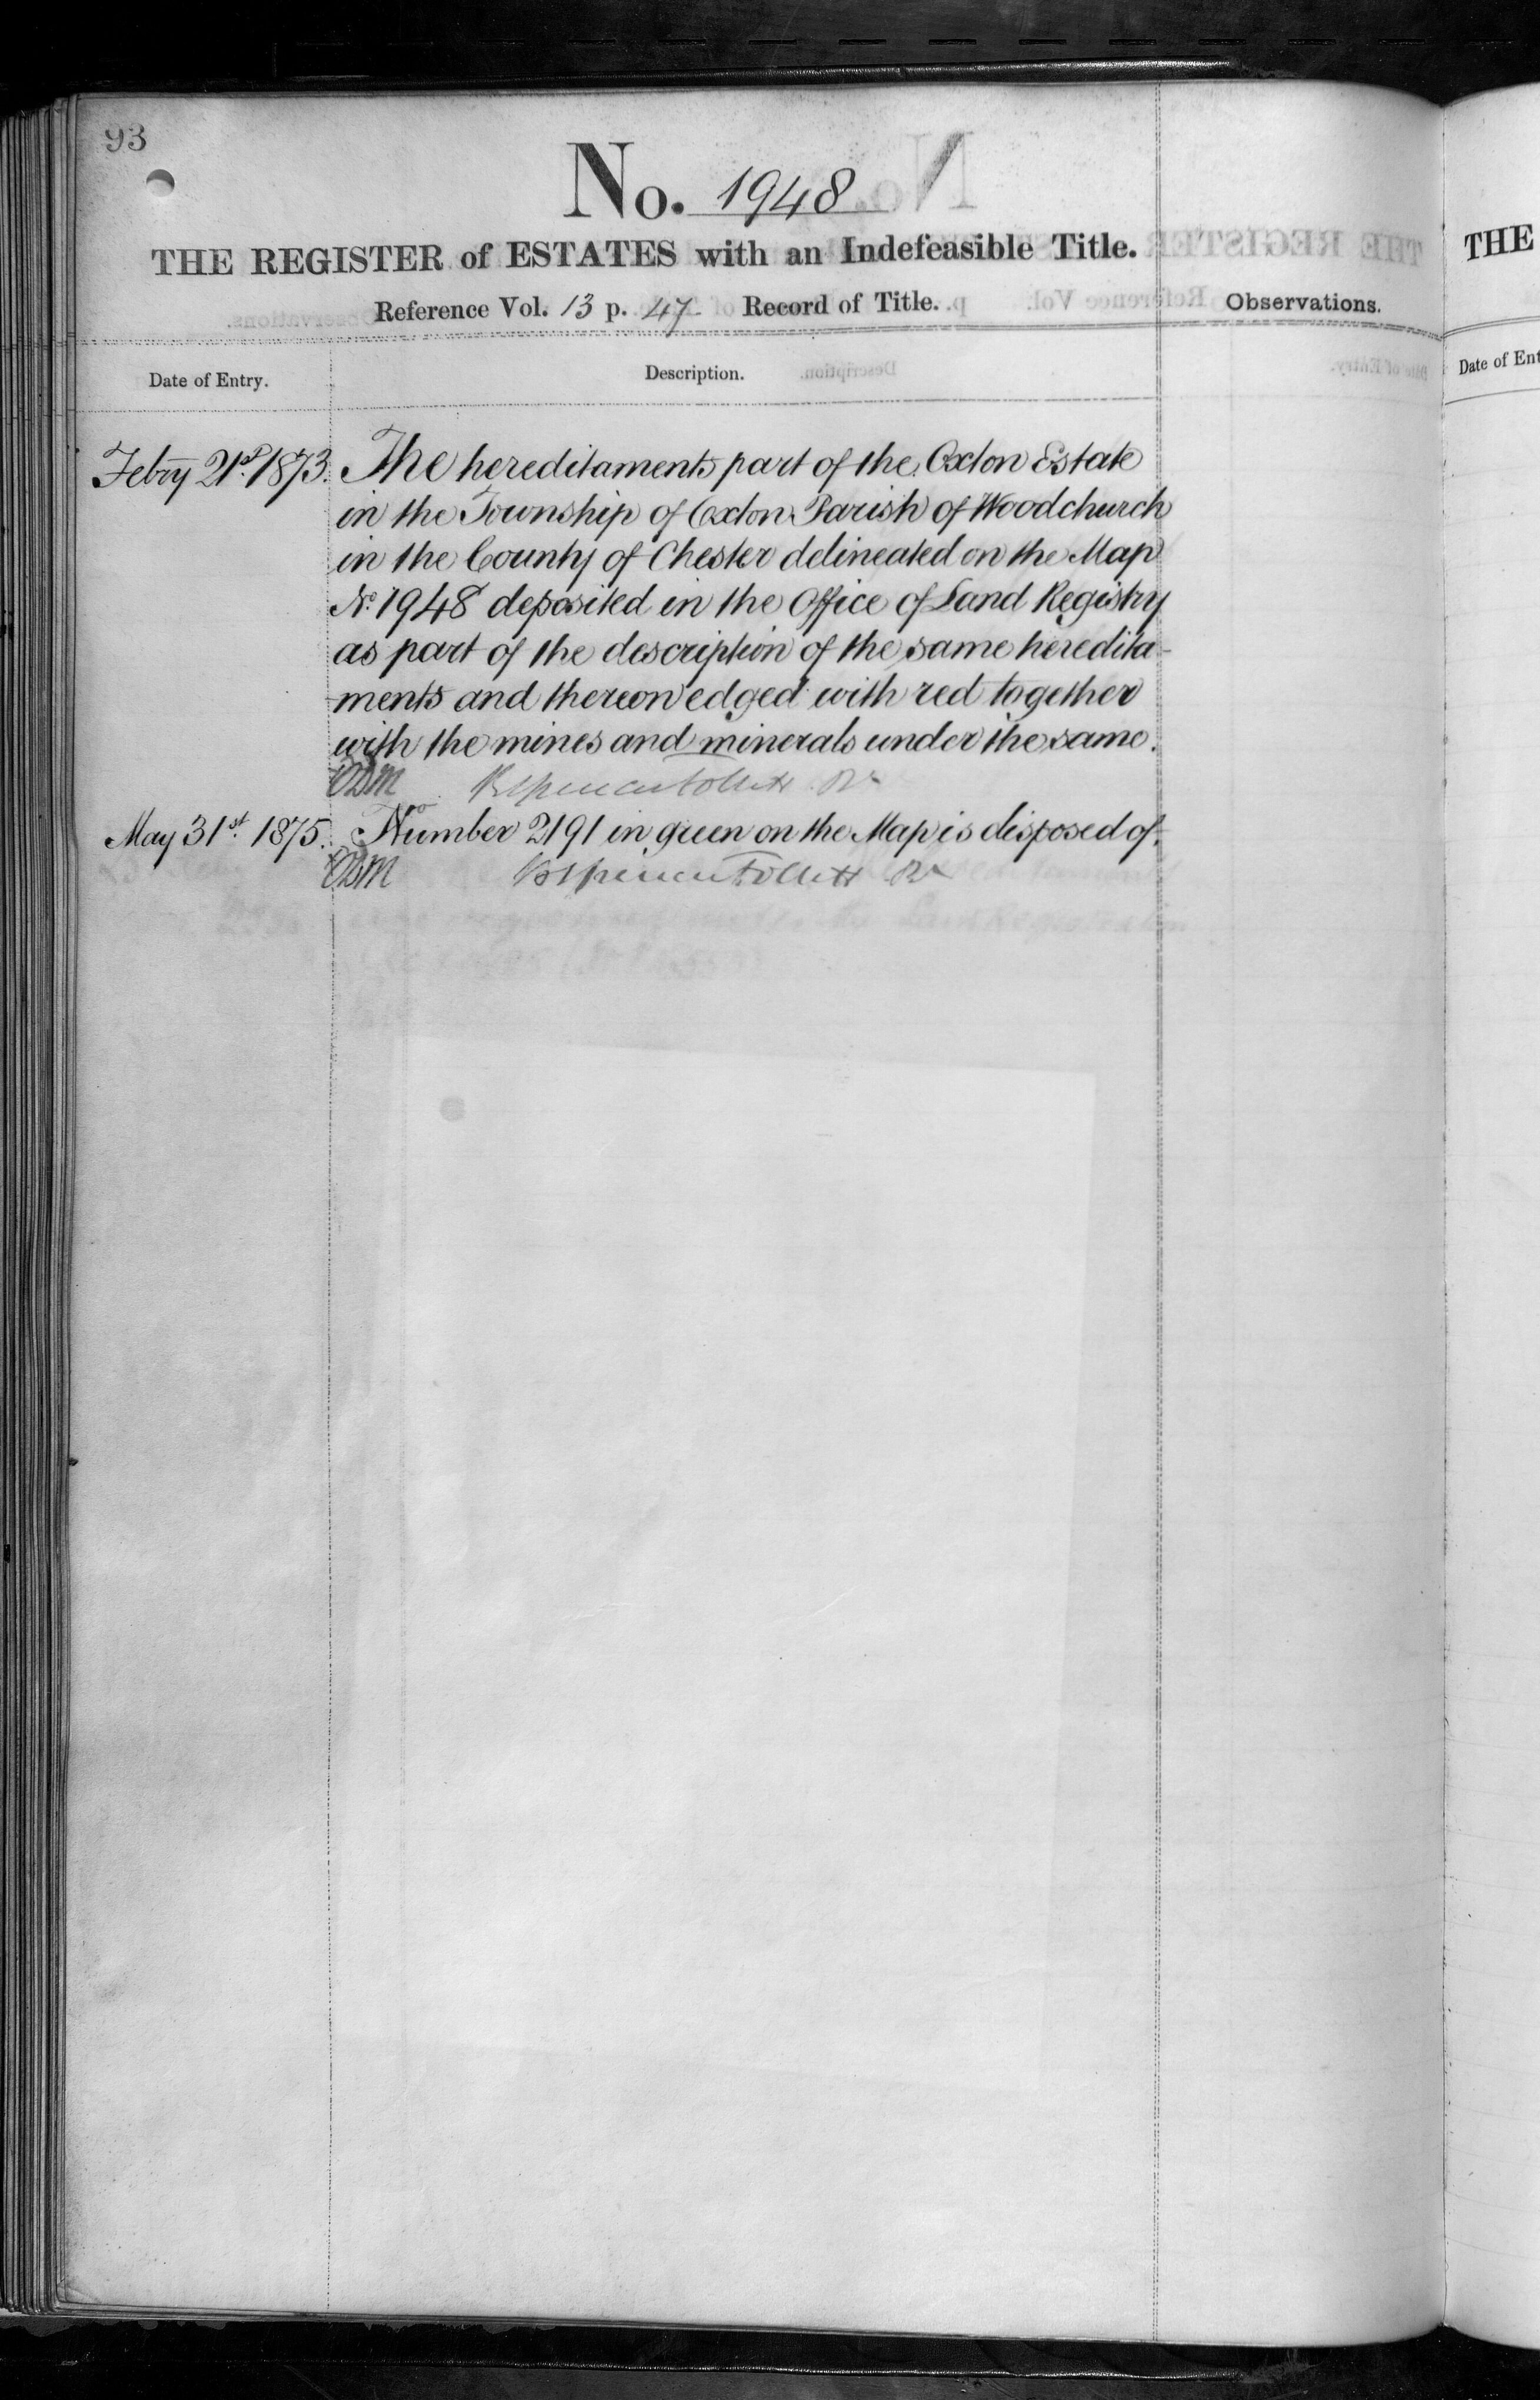 93
No. 1948
THE REGISTER of ESTATES with an Indefeasible Title.
Reference Vol. 13 p. 47 Record of Title.
Observations.
Date of Entry.
Description.
Febry 21st 1873. The hereditaments part of the Oxton Estate
in the Township of Oxton Parish of Woodchurch
in the County of Chester delineated on the Map
No. 1948 deposited in the Office of Land Registry
as part of the description of the same heredita-
ments and thereon edged with red together
with the mines and minerals under the same.
Brent Spencer Follett
May 31st 1875. Number 2191 in green on the Map is disposed of.
Brent Spencer Follett
THE
Date of Ent